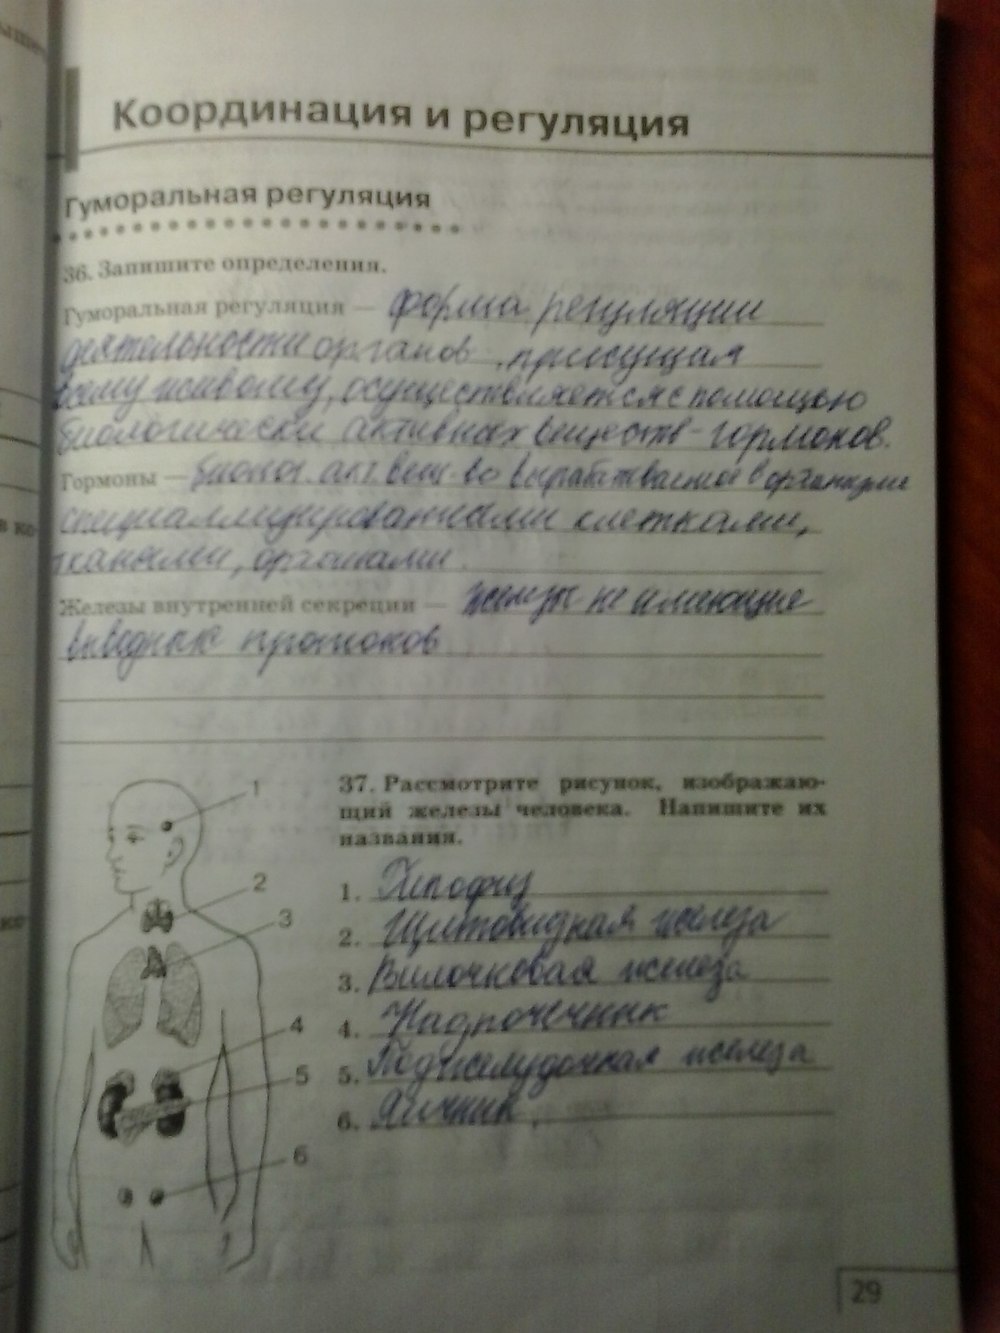 Координация и регуляция
Гуморальная регуляция
36. Запишите определения.
Гуморальная регуляция — форма регуляции
деятельности органов, присущая
всему живому, осуществляется с помощью
биологически активных веществ - гормонов.
Гормоны — биолог. акт. вещ-во вырабатываемое в организме
специализированными клетками,
тканями, органами.
Железы внутренней секреции — железы не имеющие
выводных протоков
37. Рассмотрите рисунок, изображаю-
щий железы человека. Напишите их
названия.
1
1. Гипофиз
2
2. Щитовидная железа
3
3. Вилочковая железа
4
4. Надпочечник
5
5. Поджелудочная железа
6
6. Яичник.
29